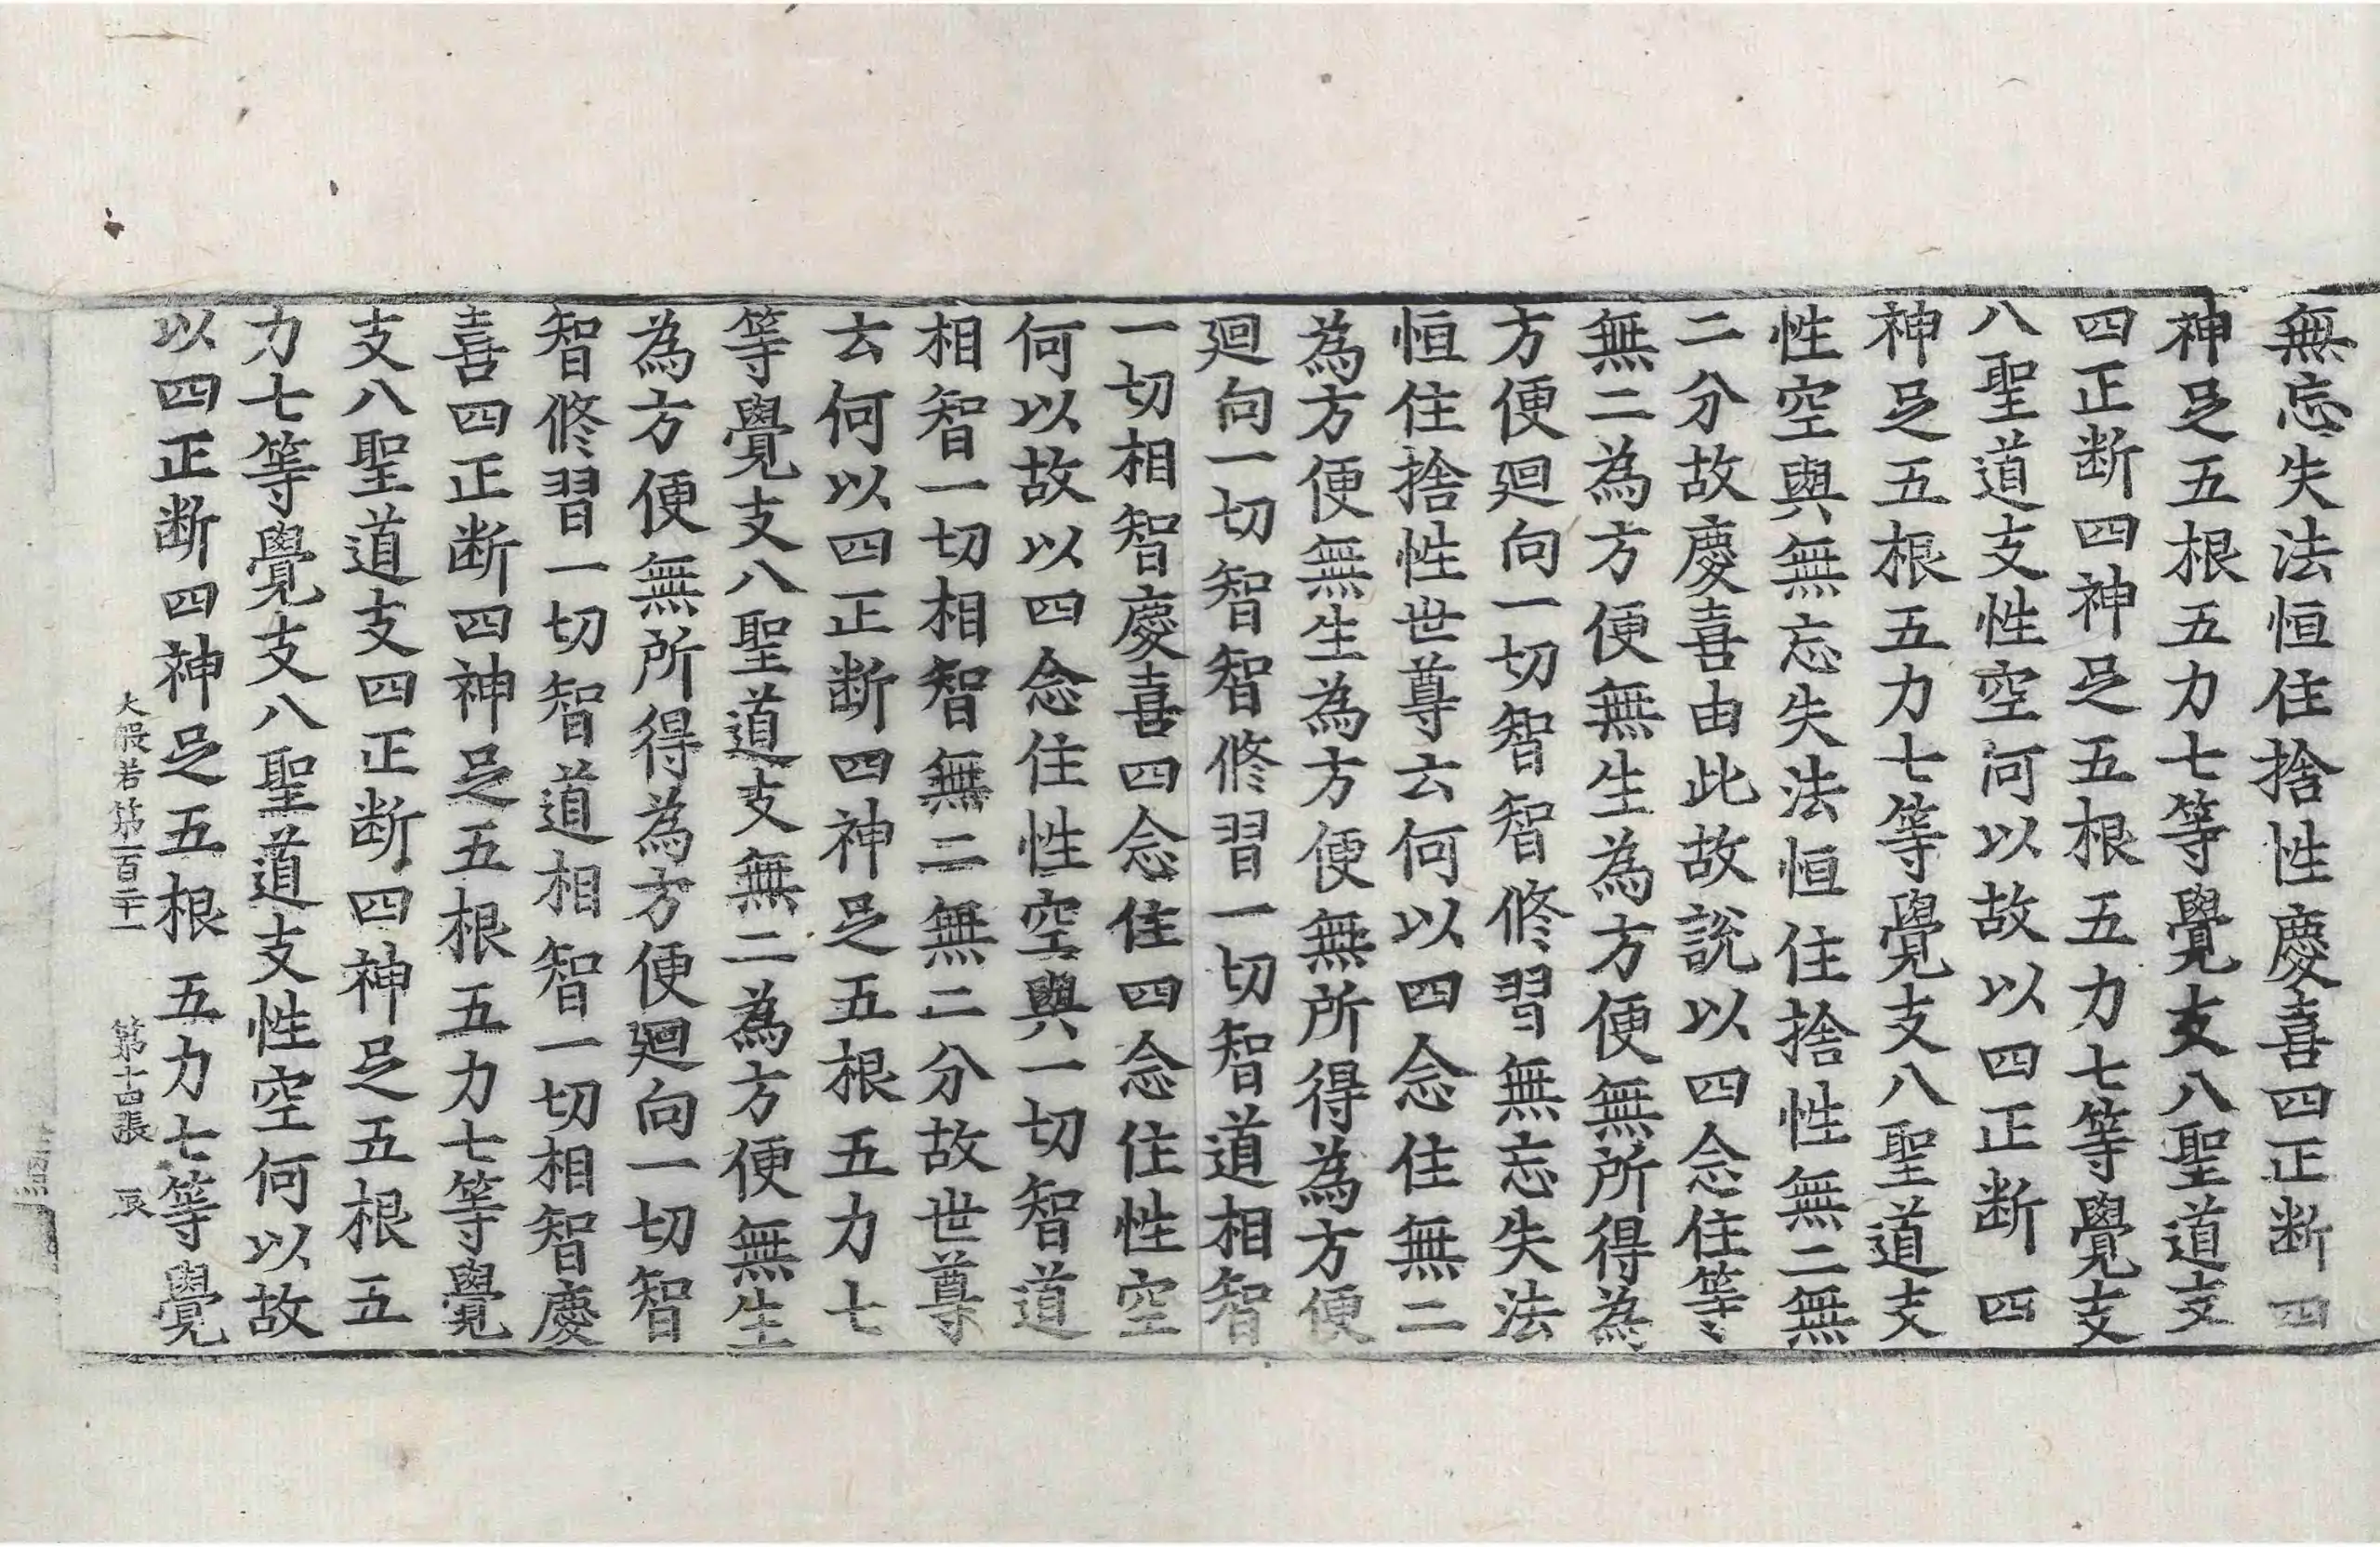 無忘失法恒住捨性慶喜四正断四
神𠯁五根五力七等覺支八聖道支
四正断四神𠯁五根五力七等覺支
八聖道支性空何以故以四正断四
神𠯁五根五力七等覺支八聖道支
性空與無忘失法恒住捨性無二無
二分故慶喜由此故說以四念住等
無二為方便無生為方便無所得為
方便廻向一切智智修習無忘失法
恒住捨性世尊云何以四念住無二
為方便無生為方便無所得為方便
廻向一切智智修習一切智道相智
一切相智慶喜四念住四念住性空
何以故以四念住性空與一切智道
相智一切相智無二無二分故世尊
云何以四正断四神𠯁五根五力七
等覺支八聖道支無二為方便無生
為方便無所得為方便廻向一切智
智修習一切智道相智一切相智慶
喜四正断四神𠯁五根五力七等覺
支八聖道支四正断四神𠯁五根五
力七等覺支八聖道支性空何以故
以四正断四神𠯁五根五力七等覺
大般若第一百二十一 第十四張